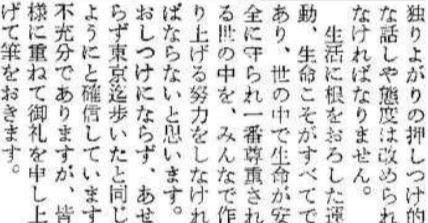 独りよがりの押しつけ的
な話しや態度は改められ
なければなりません。
生活に根をおろした運
動、生命こそがすべてで
あり、世の中で生命が安
全に守られ一番尊重され
る世の中を、みんなで作
り上げる努力をしなけれ
ばならないと思います。
おしつけにならず、あせ
らず東京迄歩いたと同じ
ようにと確信しています
不充分でありますが、皆
様に重ねて御礼を申し上
げて筆をおきます。